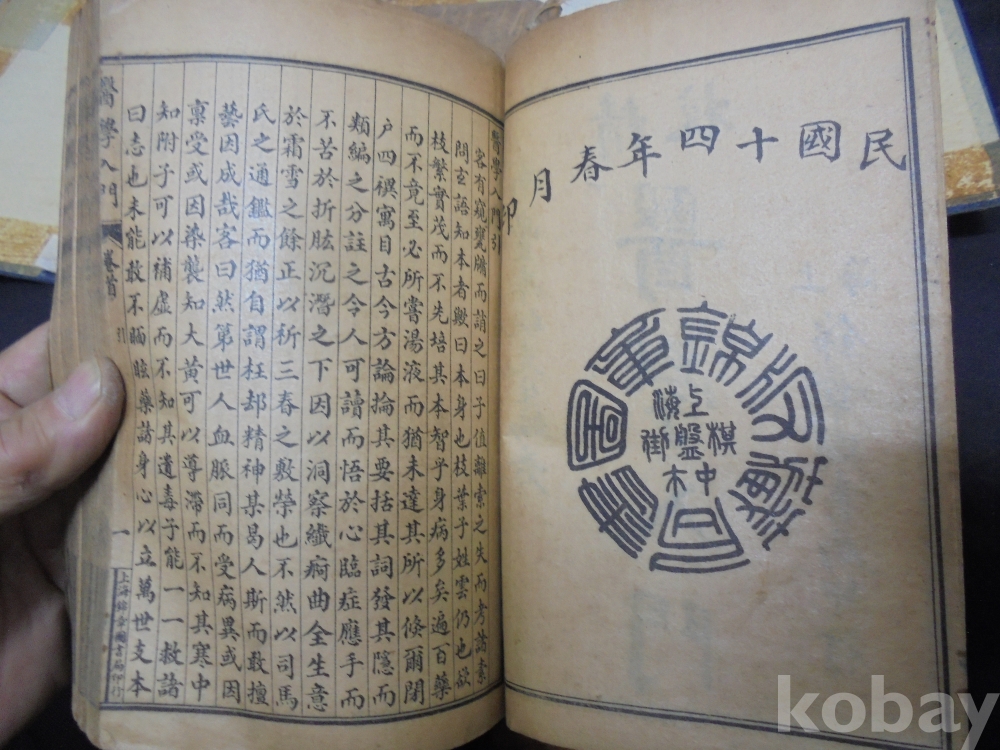 民國十四年春月印
錦章圖書局
上海棋盤街中市
醫學入門引
客有窺甕牖而誚之曰子值離索之失而考諸素
問玄語知本者歟曰本身也枝葉子姓雲仍也欲
枝繁實茂而不先培其本智乎身病多矣遍百藥
而不竟至必所嘗湯液而猶未達其所以倏爾閉
户四禩寓目古今方論掄其要括其詞發其隱而
類編之分註之令人可讀而悟於心臨症應手而
不苦於折肱沉潛之下因以洞察纖痾曲全生意
於霜雪之餘正以祈三春之敷榮也不然以司馬
氏之通鑑而猶自謂枉却精神某曷人斯而敢擅
藝因成哉客曰然第世人血脈同而受病異或因
稟受或因染襲知大黃可以導滯而不知其寒中
知附子可以補虛而不知其遺毒子能一一救諸
曰志也未能敢不瞑眩藥諸身心以立萬世支本
醫學入門 卷首 引 一 上海錦章圖書局印行
kobay